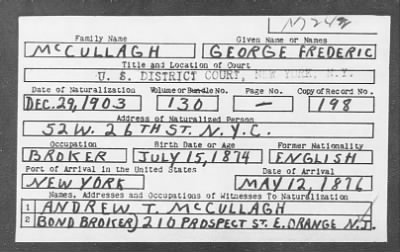 M242
Family Name Given Name or Names
McCULLAGH GEORGE FREDERIC
Title and Location of Court
U. S. DISTRICT COURT, NEW YORK, N.Y.
Date of Naturalization Volume or Bundle No. Page No. Copy of Record No.
DEC. 29, 1903 130 — 198
Address of Naturalized Person
52 W. 26TH ST. N.Y.C.
Occupation Birth Date or Age Former Nationality
BROKER JULY 15, 1874 ENGLISH
Port of Arrival in the United States Date of Arrival
NEW YORK MAY 12, 1876
Names, Addresses and Occupations of Witnesses To Naturalization
1 ANDREW T. McCULLAGH
2 (BOND BROKER) 210 PROSPECT ST. E. ORANGE N.J.